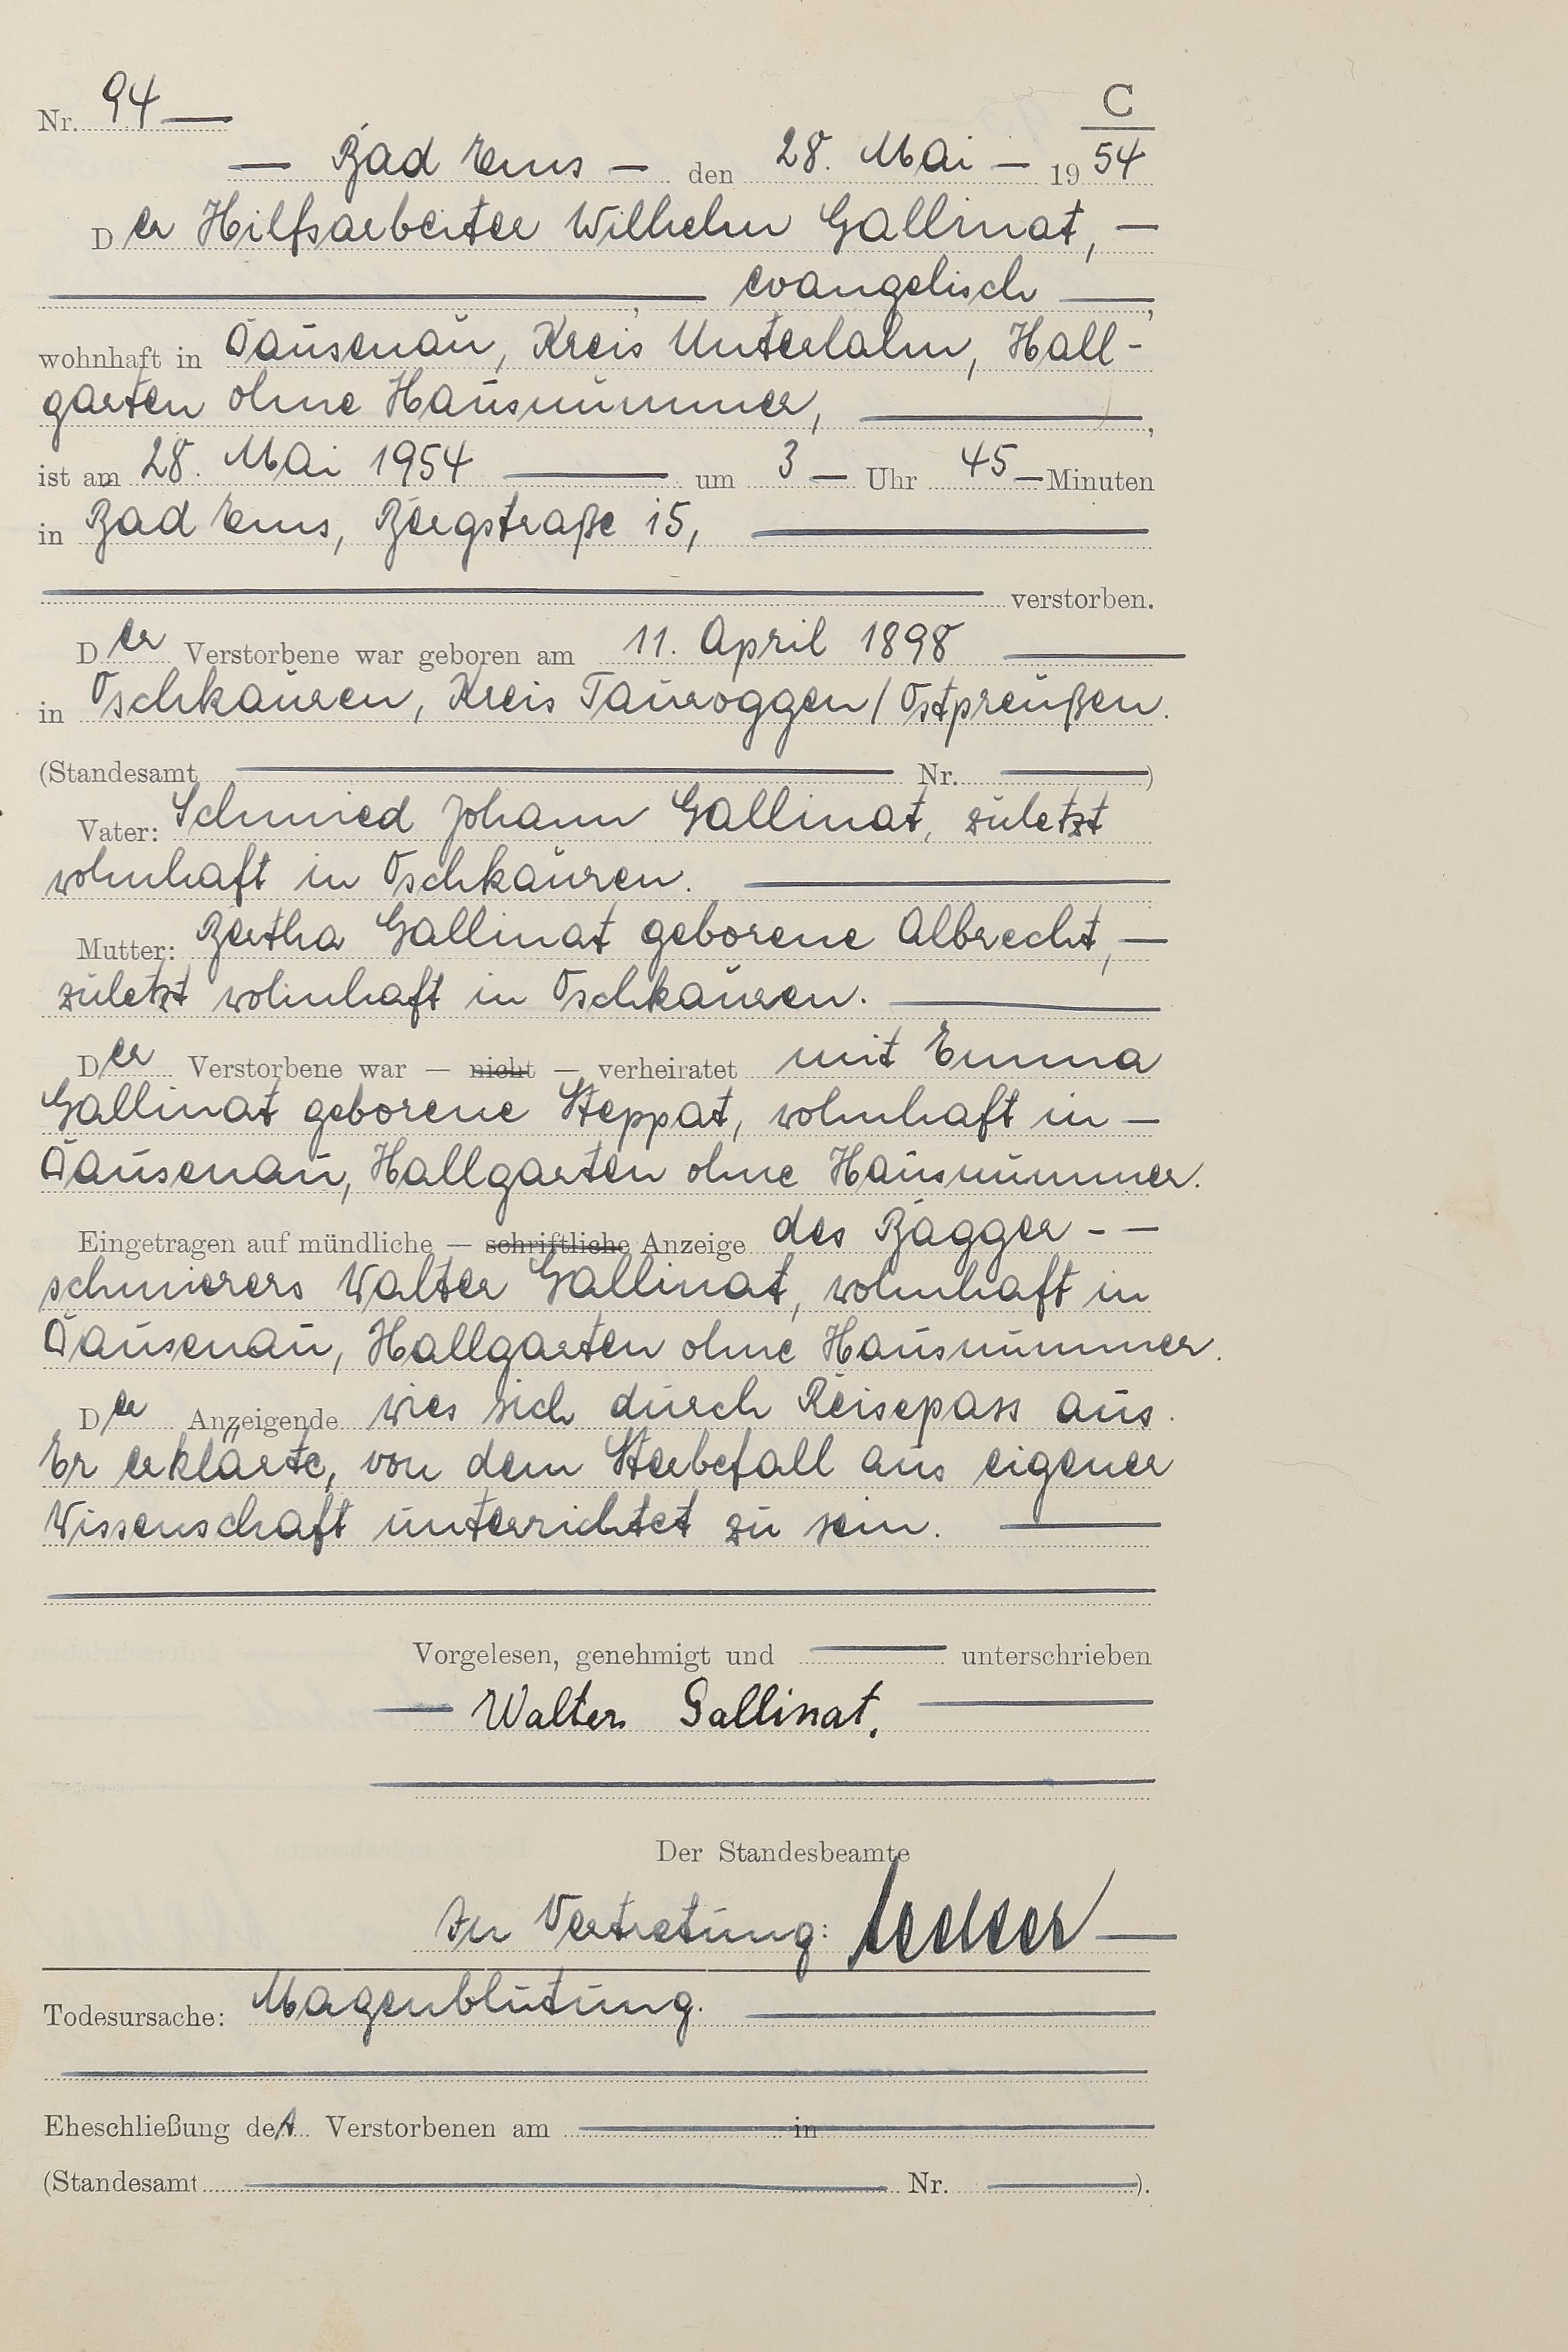 Nr. 94 —
C
— Bad Ems — den 28. Mai — 19 54
Der Hilfsarbeiter Wilhelm Gallinat, —
evangelisch —,
wohnhaft in Dausenau, Kreis Unterlahn, Hall-
garten ohne Hausnummer, —,
ist am 28. Mai 1954 — um 3 — Uhr 45 — Minuten
in Bad Ems, Bergstraße 15, —
verstorben.
Der Verstorbene war geboren am 11. April 1898 —
in Oschkauren, Kreis Tauroggen / Ostpreußen.
(Standesamt — Nr. —)
Vater: Schmied Johann Gallinat, zuletzt
wohnhaft in Oschkauren. —
Mutter: Bertha Gallinat geborene Albrecht, —
zuletzt wohnhaft in Oschkauren. —
Der Verstorbene war — nicht — verheiratet mit Emma
Gallinat geborene Steppat, wohnhaft in —
Dausenau, Hallgarten ohne Hausnummer.
Eingetragen auf mündliche — schriftliche Anzeige des Bagger - —
schmierers Walter Gallinat, wohnhaft in
Dausenau, Hallgarten ohne Hausnummer.
Der Anzeigende wies sich durch Reisepass aus.
Er erklärte, von dem Sterbefall aus eigener
Wissenschaft unterrichtet zu sein. —
Vorgelesen, genehmigt und — unterschrieben
— Walter Gallinat. —
Der Standesbeamte
In Vertretung:
Todesursache: Magenblutung. —
Eheschließung des Verstorbenen am — in —
(Standesamt — Nr. —).